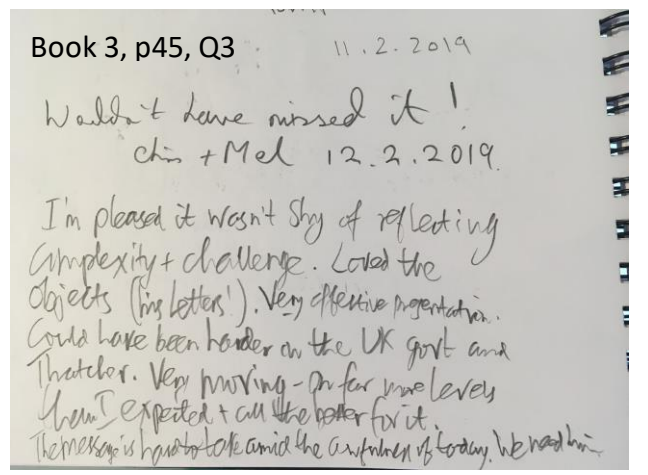 Book 3, p45, Q3
11.2.2019
Wouldn't have missed it!
+ Mel 12.2.2019.
I'm pleased it wasn't shy of reflecting
complexity + challenge. Loved the
objects (his letters!). Very effective presentation.
Could have been harder on the UK govt and
Thatcher. Very moving - on far more levels
than I expected + all the better for it.
The message is hard to take amid the awfulness of today. We need him